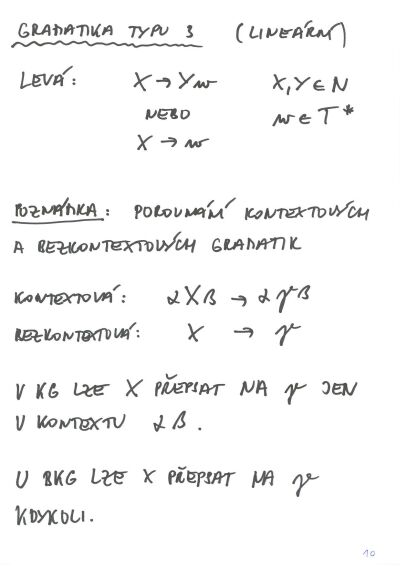 GRAMATIKA TYPU 3 (LINEÁRNÍ)
LEVÁ: X → Yw X,Y ∈ N
NEBO w ∈ T*
X → w
POZNÁMKA: POROVNÁNÍ KONTEXTOVÝCH
A BEZKONTEXTOVÝCH GRAMATIK
KONTEXTOVÁ: αXβ → αγβ
BEZKONTEXTOVÁ: X → γ
V KG LZE X PŘEPSAT NA γ JEN
V KONTEXTU αβ.
U BKG LZE X PŘEPSAT NA γ
KDYKOLI.
10